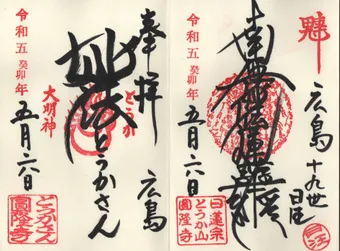 広島
十九世
令和五癸卯年
五月六日
日蓮宗
とうか山
圓隆寺
奉拝
広島
とうか
妙法
とうかさん
大明神
令和五癸卯年
五月六日
とうかさん
圓隆寺